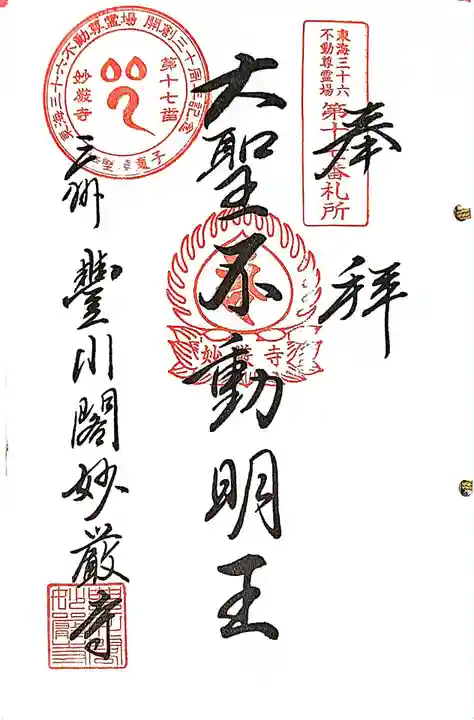 東海三十六
不動尊霊場
第十七番札所
奉拝
大聖不動明王
妙厳寺
東海三十六不動尊霊場 開創三十周年記念
第十七番
妙厳寺
童子
三州 豐川閣妙厳寺